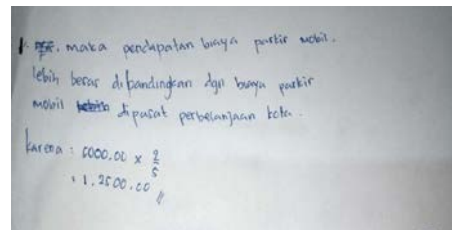 maka pendapatan biaya parkir mobil.
lebih besar dibandingkan dgn biaya parkir
mobil dipusat perbelanjaan kota.
karena : 5000.00 x 2/5
: 1.2500.00 //